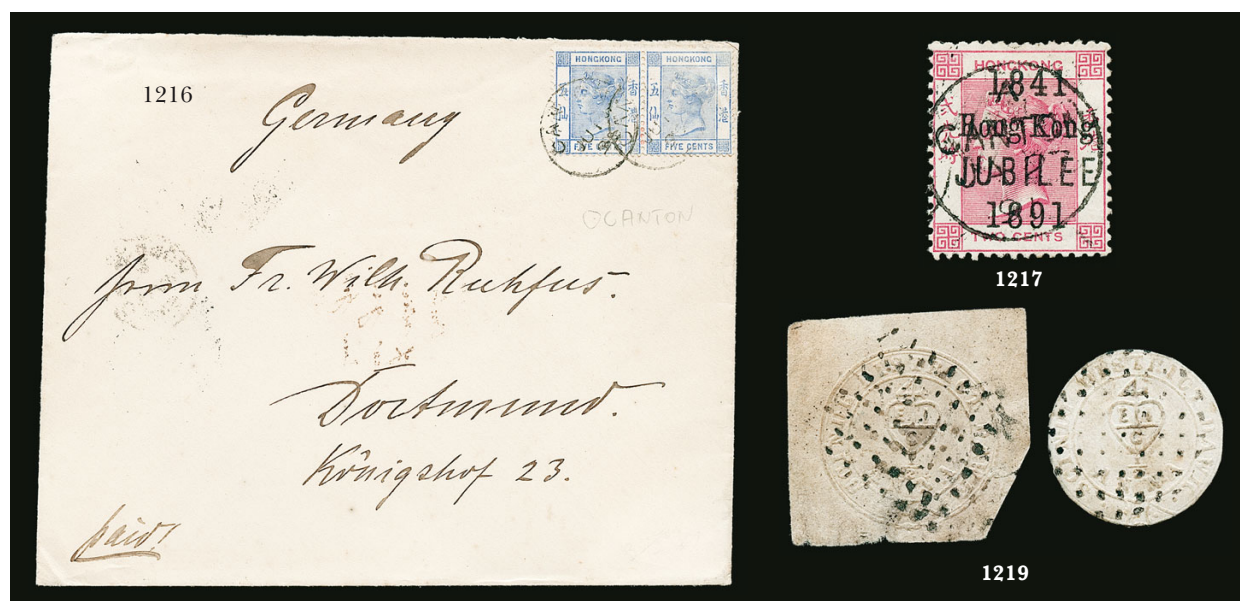 1216
Germany
HONGKONG
五仙
香港
FIVE CENTS
HONGKONG
五仙
香港
FIVE CENTS
CANTON
Herrn Fr. Wilh. Ruhfus.
Dortmund.
Königshof 23.
paid!
HONGKONG
1841
Hong Kong
CANTON
JUBILEE
1891
TWO CENTS
1217
1219